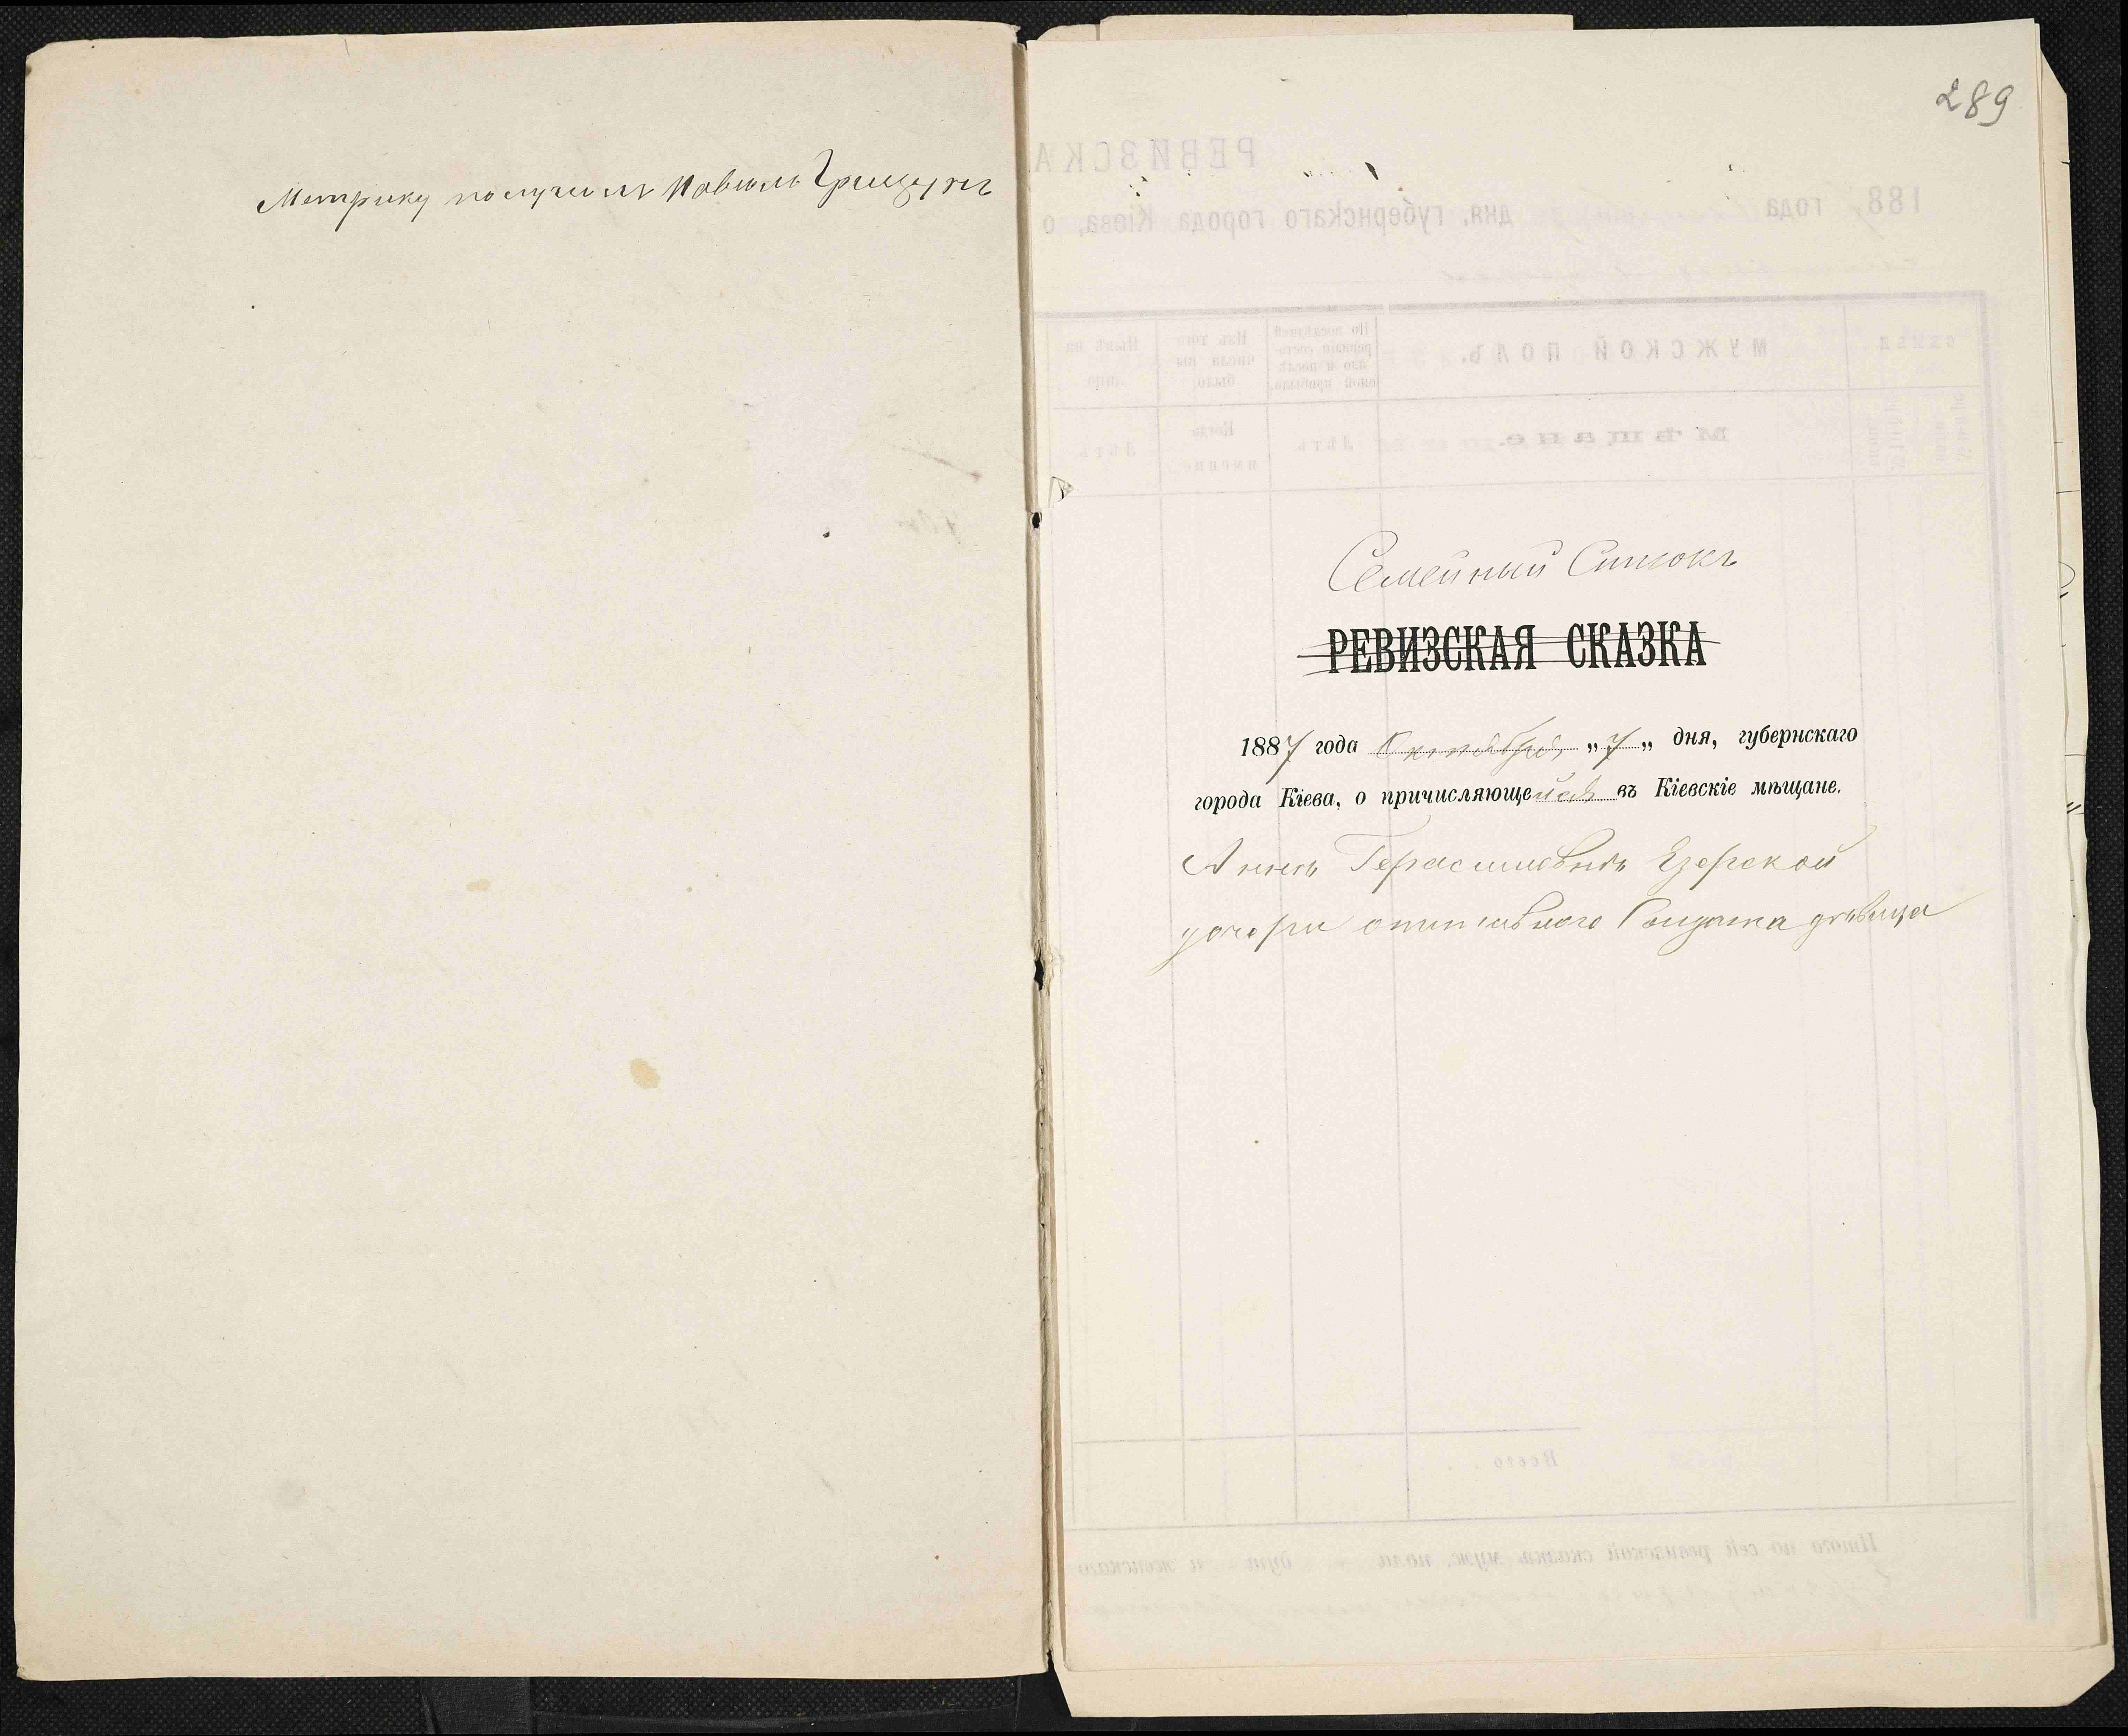 Метрику получилъ Павелъ Грищукъ
289
Семейный Списокъ
РЕВИЗСКАЯ СКАЗКА
1887 года Октября „7„ дня, губернскаго
города Кіева, о причисляющейся въ Кіевскіе мѣщане.
Аннѣ Герасимовнѣ Езерской
дочери отставного Солдата дѣвица